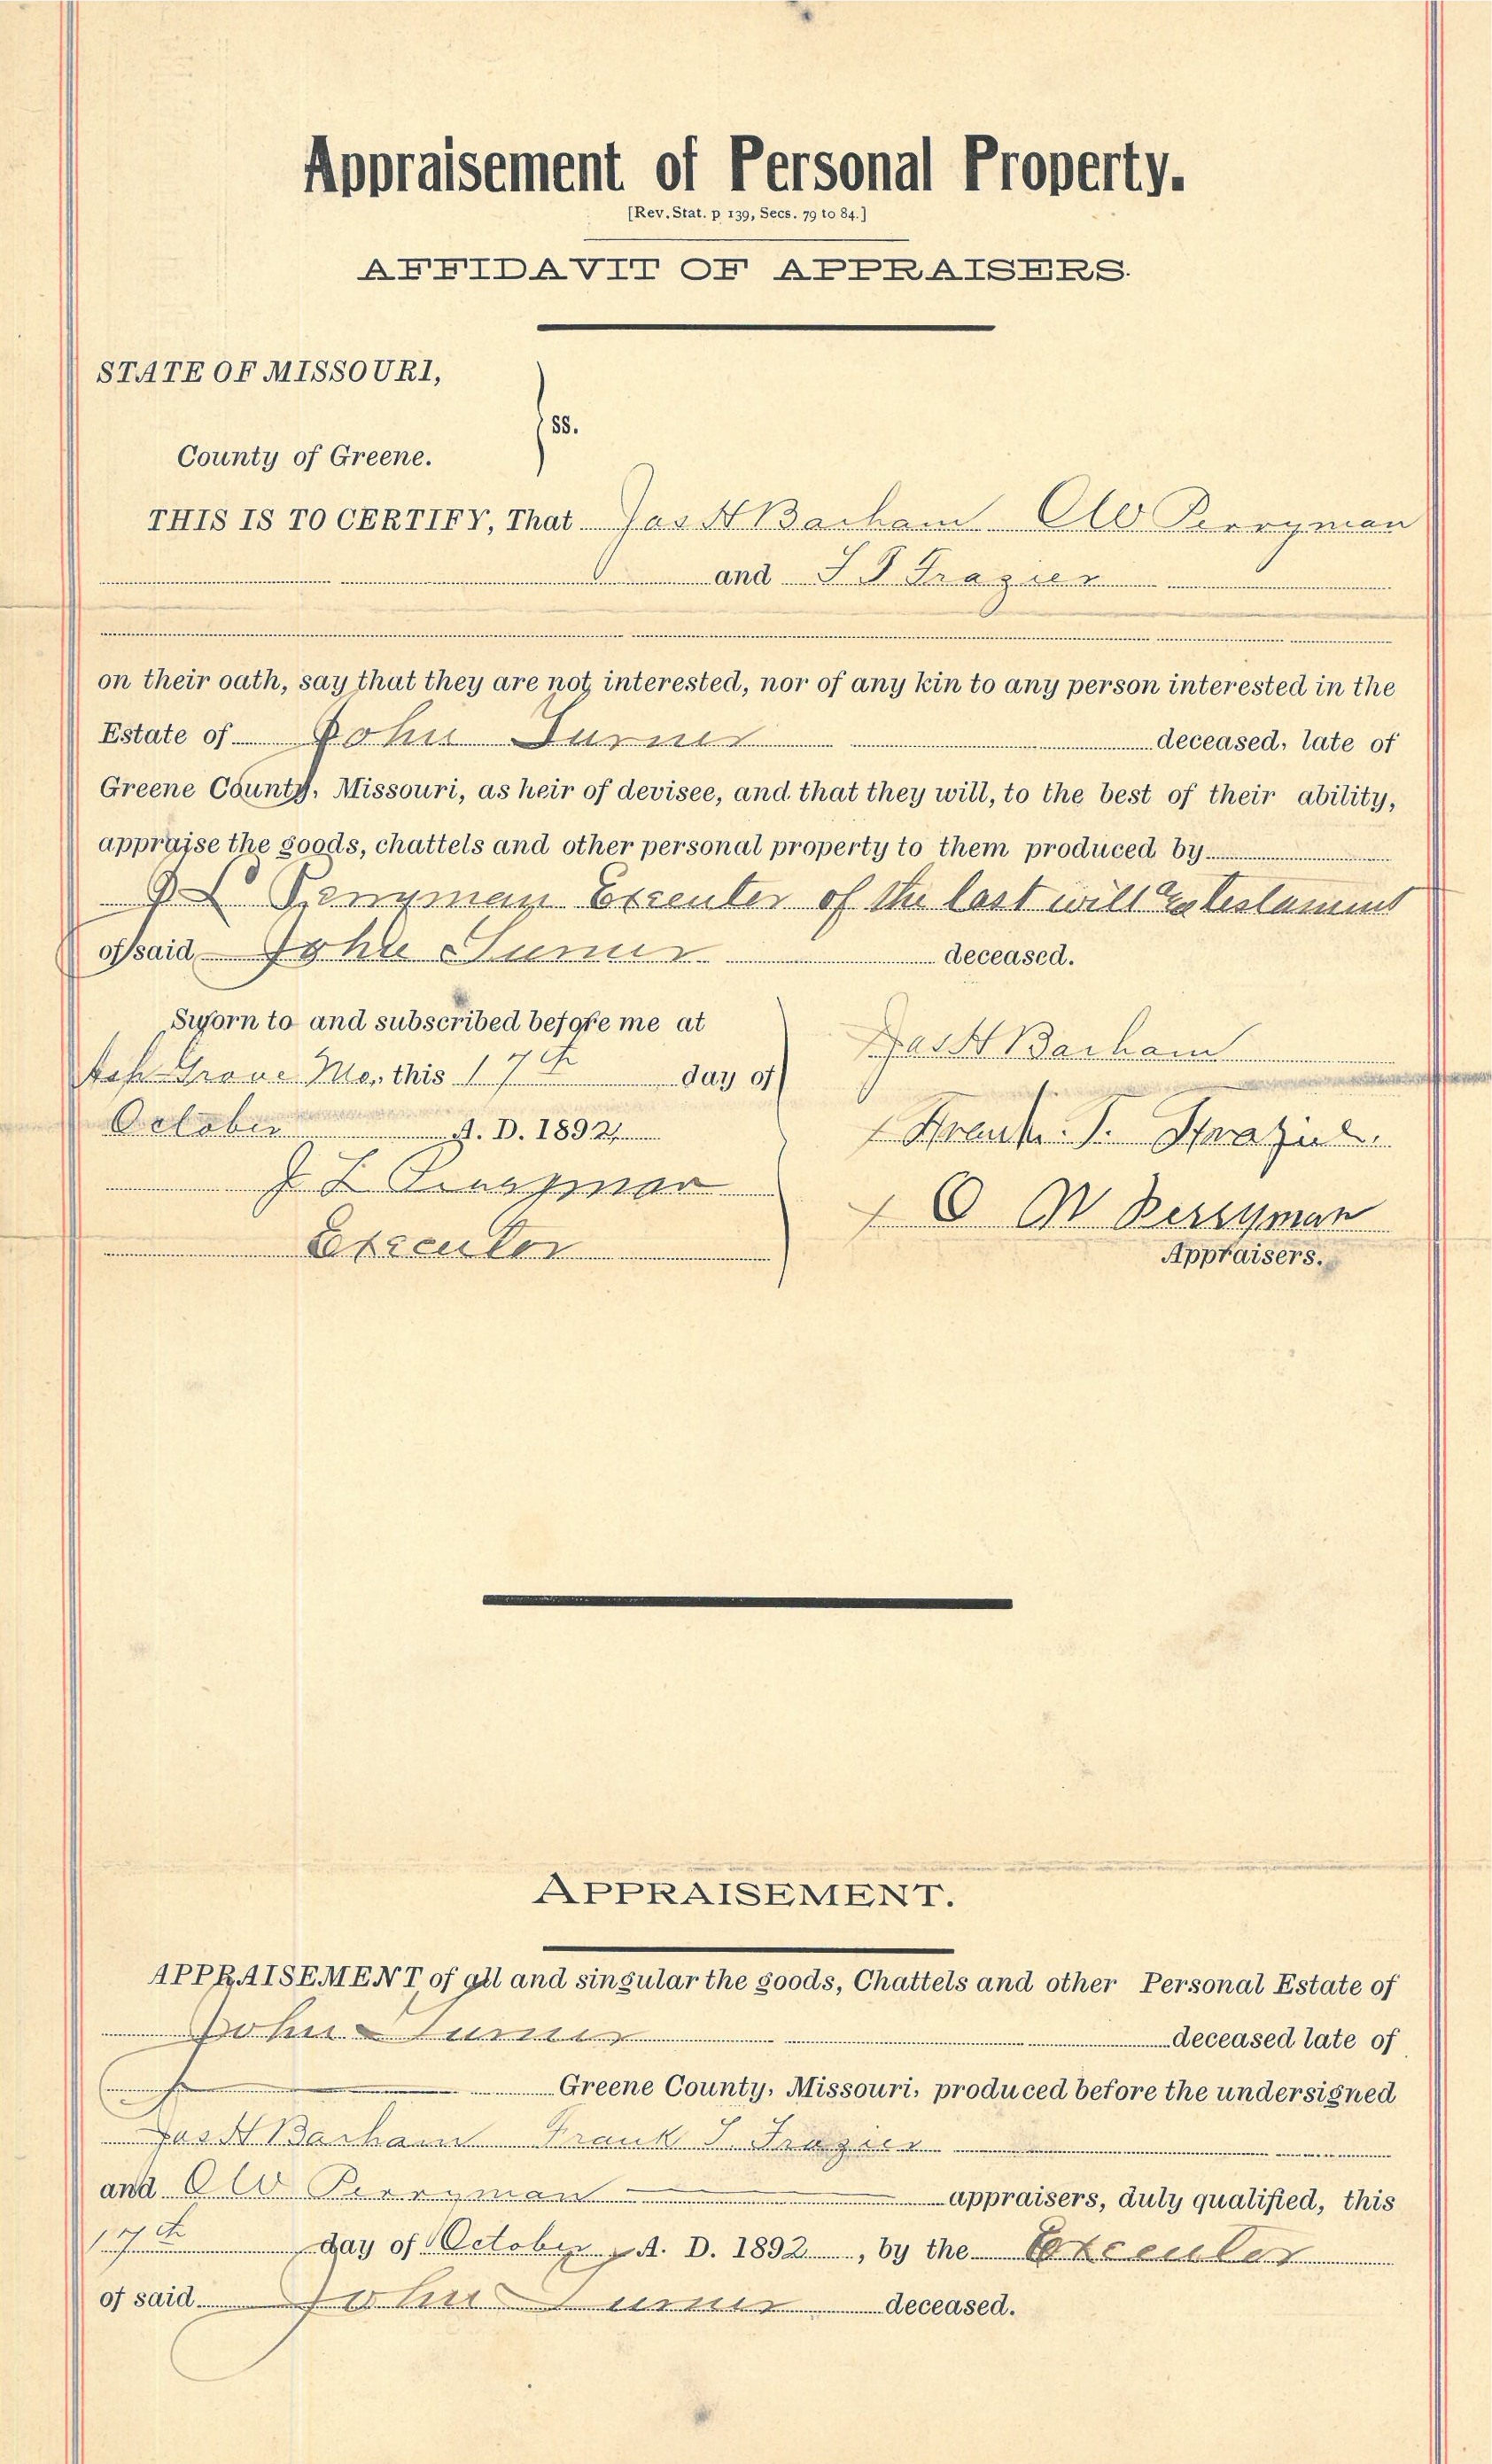 Appraisement of Personal Property.
[Rev. Stat. p 139, Secs. 79 to 84.]
AFFIDAVIT OF APPRAISERS.
STATE OF MISSOURI,
ss.
County of Greene.
THIS IS TO CERTIFY, That Jas H Barham C W Perryman
and F T Frazier
on their oath, say that they are not interested, nor of any kin to any person interested in the
Estate of John Turner deceased, late of
Greene County, Missouri, as heir of devisee, and that they will, to the best of their ability,
appraise the goods, chattels and other personal property to them produced by
J L Perryman Executor of the last will & testament
of said John Turner deceased.
Sworn to and subscribed before me at
Ash Grove Mo, this 17th day of
October A. D. 1892
J L Perryman
Executor
Jas H Barham
Frank T. Frazier.
C W Perryman
Appraisers.
APPRAISEMENT.
APPRAISEMENT of all and singular the goods, Chattels and other Personal Estate of
John Turner deceased late of
Greene County, Missouri, produced before the undersigned
Jas H Barham Frank T Frazier
and C W Perryman appraisers, duly qualified, this
17th day of October, A. D. 1892, by the Executor
of said John Turner deceased.